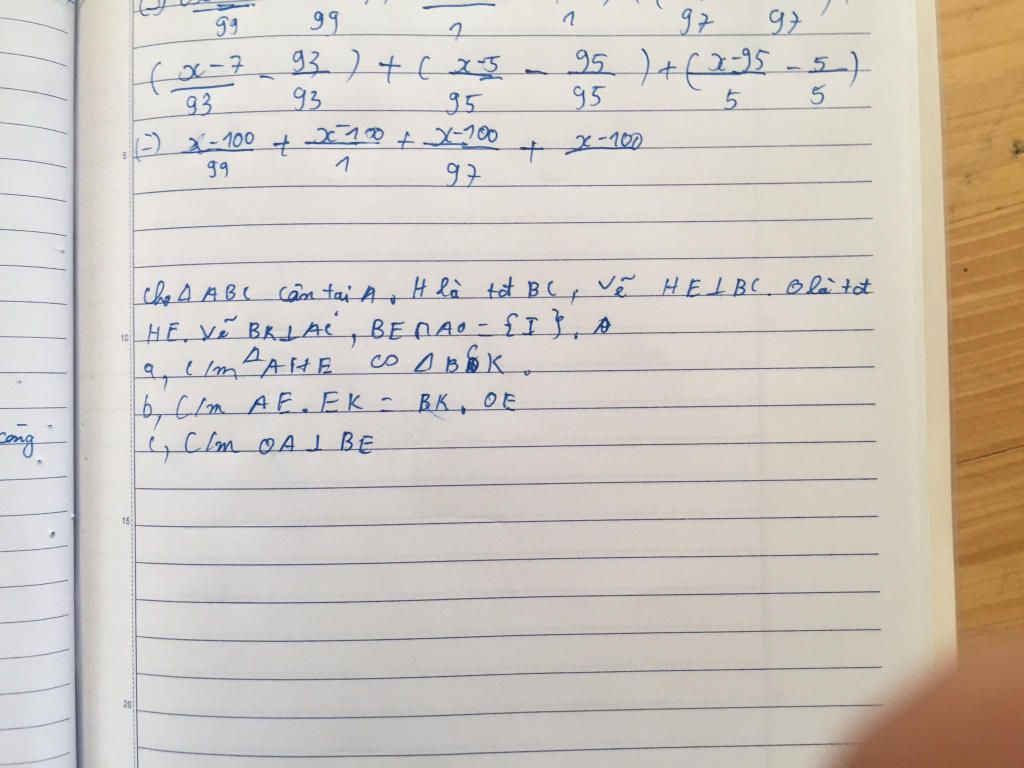 99 99 1 1 97 97
(x-7/93 - 93/93) + (x-5/95 - 95/95) + (x-95/5 - 5/5)
5 (=) x-100/99 + x-100/1 + x-100/97 + x-100
Cho Δ ABC cân tại A, H là tđt BC, vẽ HE⊥BC. O là tđt
10 HE. Vẽ BK⊥AC, BE∩AO = {I}.
a, C/m Δ AHE ∽ Δ BCK.
b, C/m AE. EK = BK. OE
công c, C/m OA ⊥ BE
15
20